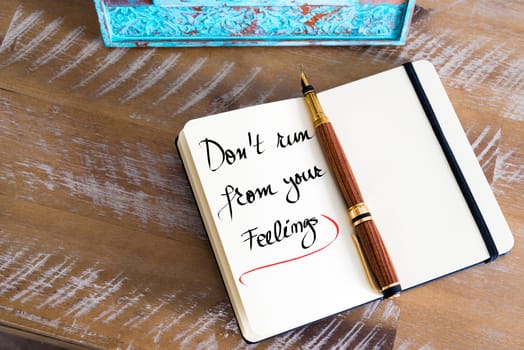 Don't run
from your
Feelings